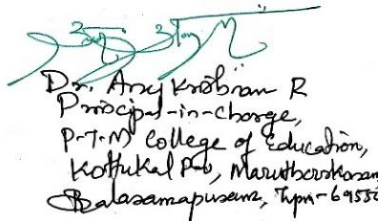 Dr. Anoj Krishnan R
Principal-in-charge,
P.T.M College of Education,
Kottukal P.O, Maruthoorkonam
Balaramapuram, Tvpm-6955